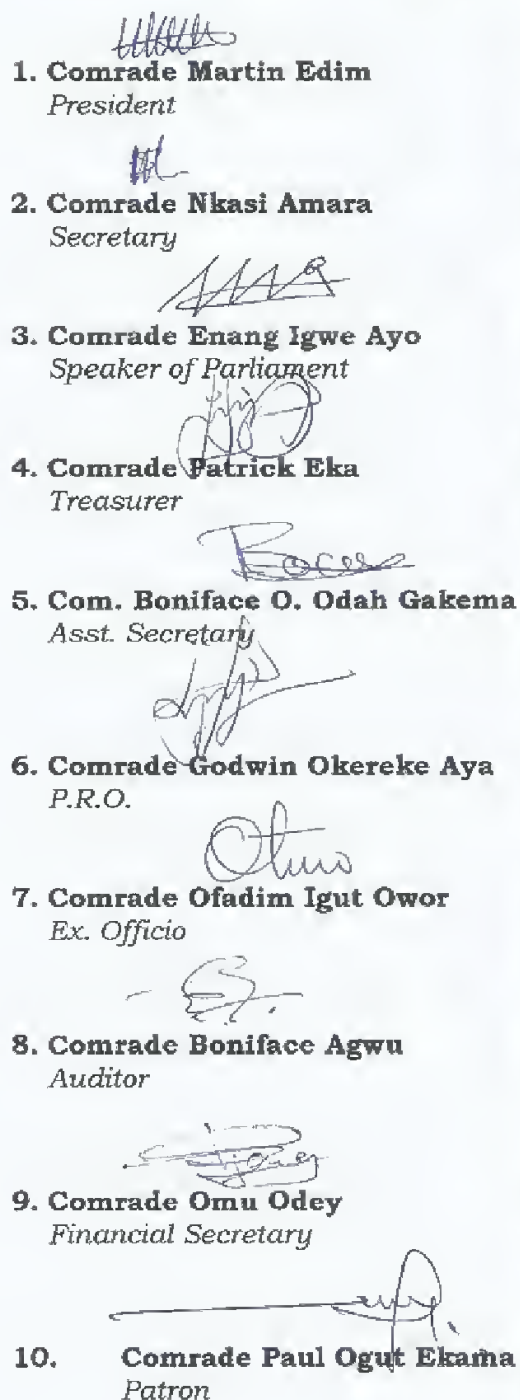 1. Comrade Martin Edim
President
2. Comrade Nkasi Amara
Secretary
3. Comrade Enang Igwe Ayo
Speaker of Parliament
4. Comrade Patrick Eka
Treasurer
5. Com. Boniface O. Odah Gakema
Asst. Secretary
6. Comrade Godwin Okereke Aya
P.R.O.
7. Comrade Ofadim Igut Owor
Ex. Officio
8. Comrade Boniface Agwu
Auditor
9. Comrade Omu Odey
Financial Secretary
10. Comrade Paul Ogut Ekama
Patron